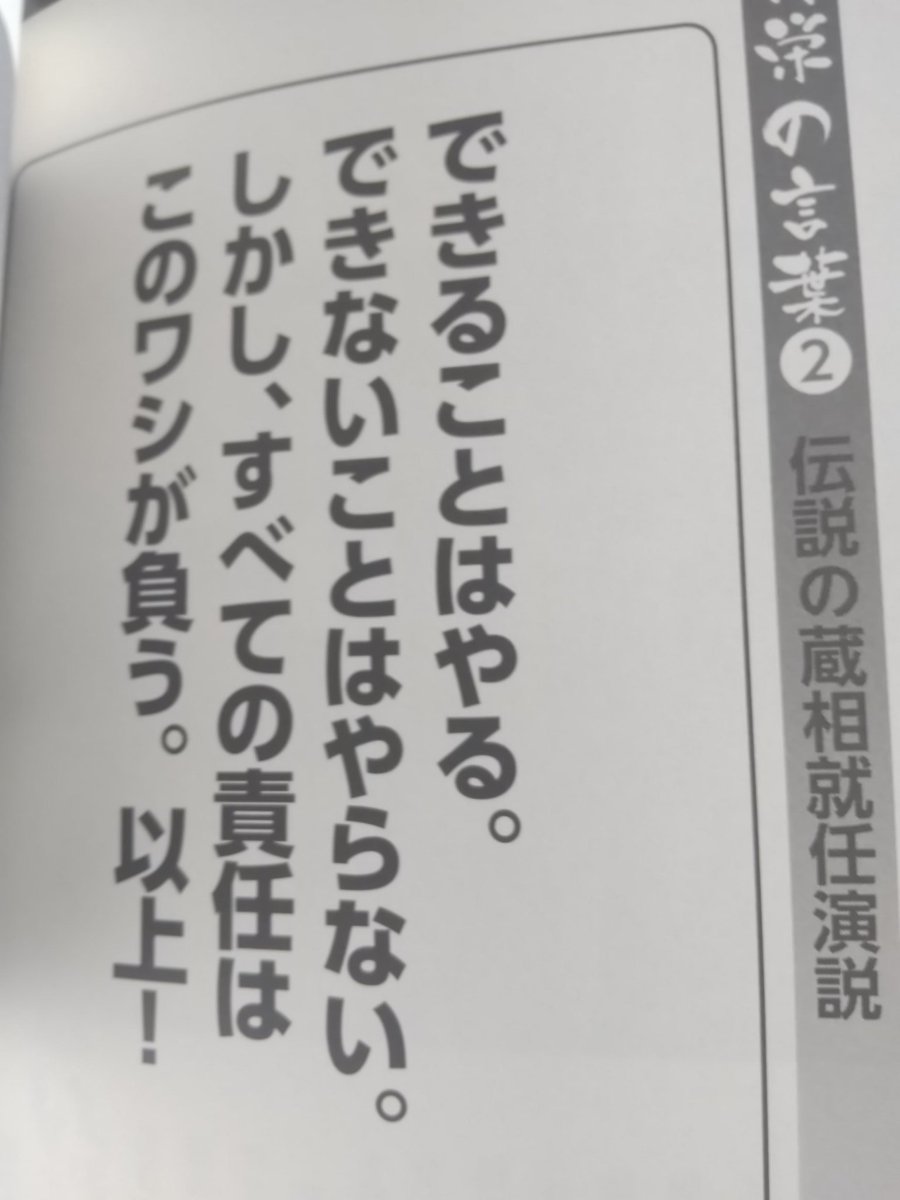 栄の言葉② 伝説の蔵相就任演説
できることはやる。
できないことはやらない。
しかし、すべての責任は
このワシが負う。 以上!